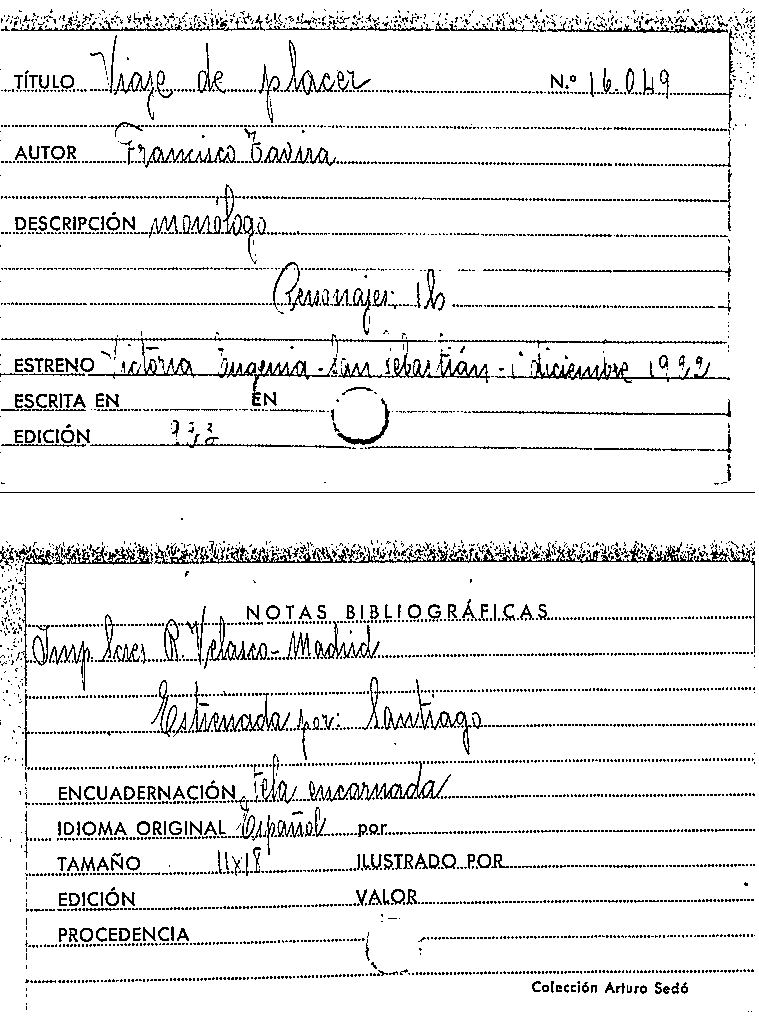 TÍTULO Viaje de placer N.º 16.049
AUTOR Francisco Tavira
DESCRIPCIÓN monólogo
Personajes: 1h
ESTRENO Victoria Eugenia - San Sebastián - 1 diciembre 1922
ESCRITA EN EN
EDICIÓN
NOTAS BIBLIOGRÁFICAS
Imp Sces R. Velasco - Madrid
Estrenada por: Santiago
ENCUADERNACIÓN Tela encarnada
IDIOMA ORIGINAL Español por
TAMAÑO 11x18 ILUSTRADO POR
EDICIÓN VALOR
PROCEDENCIA
Colección Arturo Sedó